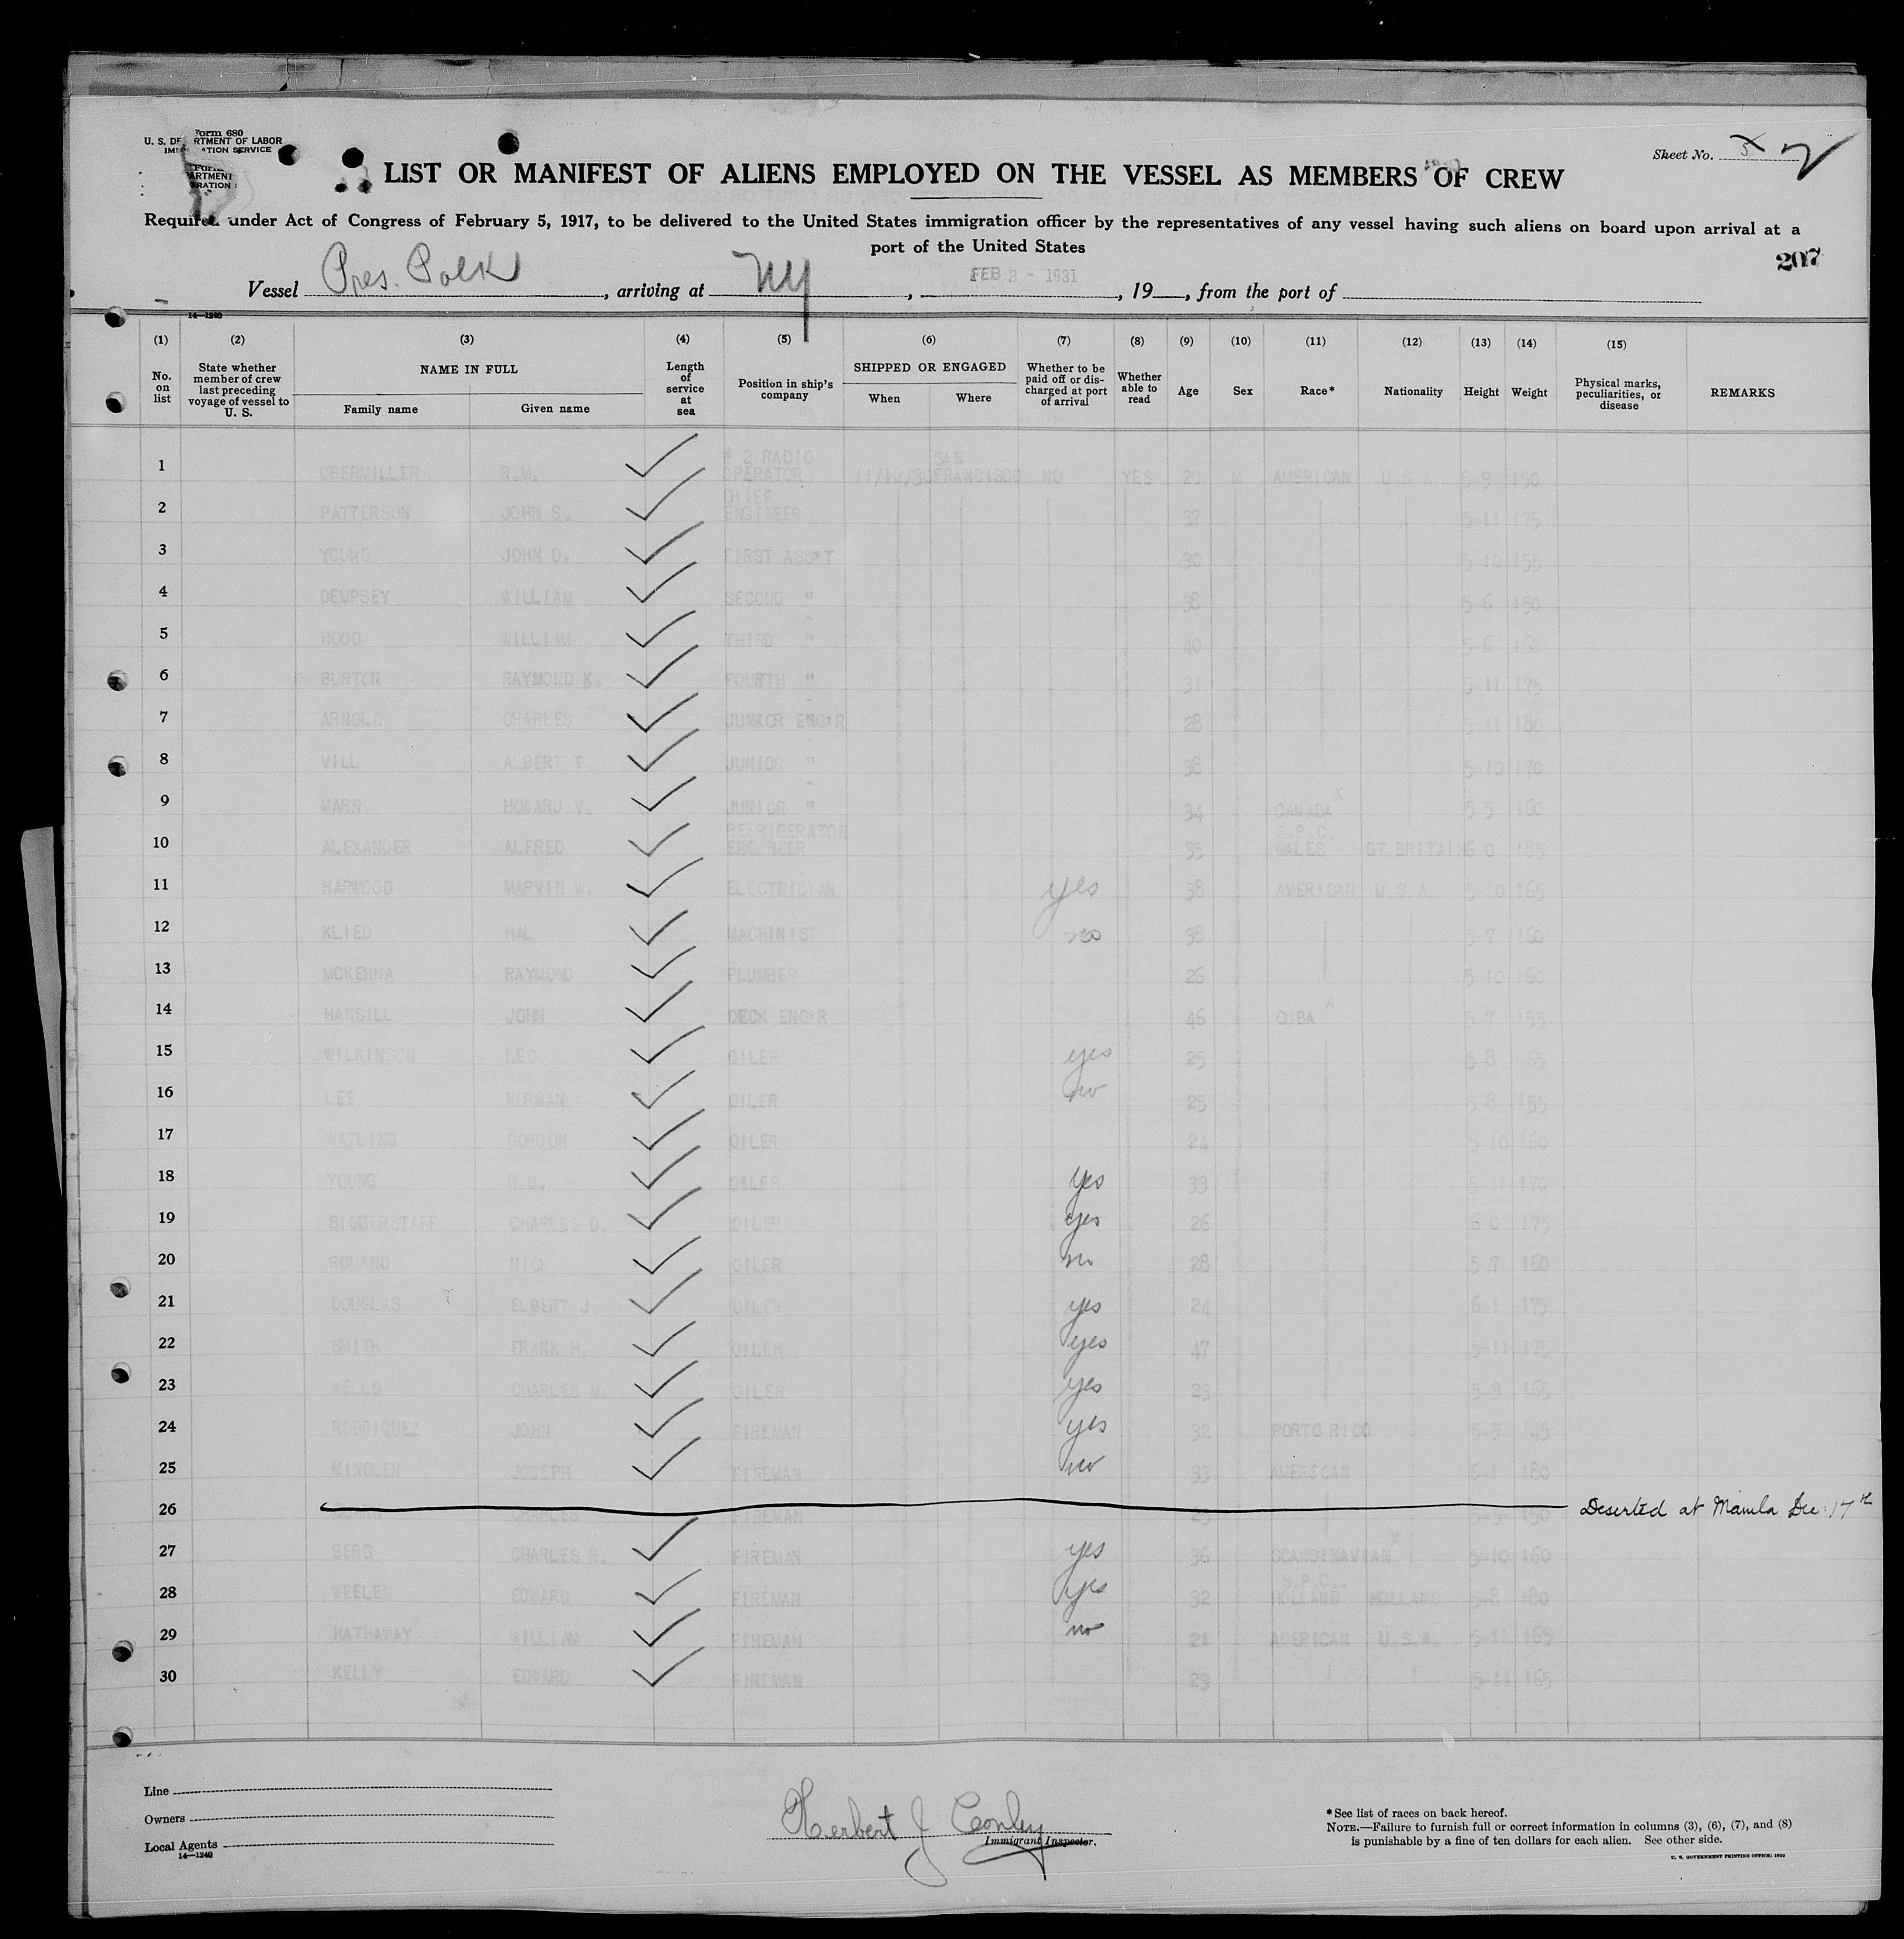 Form 680
U. S. DEPARTMENT OF LABOR
IMMIGRATION SERVICE
Sheet No. 5
LIST OR MANIFEST OF ALIENS EMPLOYED ON THE VESSEL AS MEMBERS OF CREW
Required under Act of Congress of February 5, 1917, to be delivered to the United States immigration officer by the representatives of any vessel having such aliens on board upon arrival at a
port of the United States
207
Vessel Pres. Polk, arriving at NY, FEB 3 - 1931, 19, from the port of
14—1240
(1) (2) (3) (4) (5) (6) (7) (8) (9) (10) (11) (12) (13) (14) (15)
No. on list State whether member of crew last preceding voyage of vessel to U. S. NAME IN FULL Family name Given name Length of service at sea Position in ship's company SHIPPED OR ENGAGED When Where Whether to be paid off or discharged at port of arrival Whether able to read Age Sex Race* Nationality Height Weight Physical marks, peculiarities, or disease REMARKS
1 OBERMILLER R.M. # 2 RADIO OPERATOR 11/12/30 SAN FRANCISCO NO YES 20 M AMERICAN U.S.A. 5-9 150
2 PATTERSON JOHN S. CHIEF ENGINEER 37 5-11 175
3 YOUNG JOHN D. FIRST ASS'T 30 5-10 155
4 DEMPSEY WILLIAM SECOND " 38 5-6 150
5 HOOD WILLIAM THIRD " 40 5-6 160
6 BURTON RAYMOND K. FOURTH " 31 5-11 175
7 ARNOLD CHARLES JUNIOR ENG'R 28 5-11 180
8 VILL ALBERT T. JUNIOR " 38 5-10 170
9 MARR HOWARD V. JUNIOR " 34 CANADA X 5-5 160
10 ALEXANDER ALFRED REFRIGERATOR ENGINEER 35 S.P.C. WALES GT.BRITAIN 6-0 185
11 HARWOOD MARVIN W. ELECTRICIAN yes 38 AMERICAN U.S.A. 5-10 165
12 KLIED HAL MACHINIST no 38 5-7 160
13 MCKENNA RAYMOND PLUMBER 26 5-10 160
14 HANSILL JOHN DECK ENG'R 46 CUBA 5-7 155
15 WILKINSON LEO OILER yes 25 5-8 165
16 LEE NORMAN OILER no 25 5-8 155
17 WATLING GORDON OILER 24 5-10 160
18 YOUNG R.B. OILER yes 33 5-11 170
19 BIGGERSTAFF CHARLES D. OILER yes 26 6-0 175
20 ROMANO NICK OILER no 28 5-7 160
21 DOUGLAS ELBERT J. OILER yes 24 6-1 175
22 SMITH FRANK H. OILER yes 47 5-11 175
23 WELLS CHARLES M. OILER yes 23 5-9 165
24 RODRIQUEZ JOHN FIREMAN yes 32 PORTO RICO 145
25 MINDLEN JOSEPH FIREMAN no 33 AMERICAN 6-1 180
26 CHARLES FIREMAN 150 Deserted at Manila Dec. 17th
27 BERG CHARLES R. FIREMAN yes 36 SCANDINAVIAN X 5-10 160
28 EDWARD FIREMAN yes 32 S.P.C. HOLLAND HOLLAND 5-8 180
29 HATHAWAY WILLIAM FIREMAN no 21 AMERICAN U.S.A. 5-11 165
30 KELLY EDWARD FIREMAN 23 5-11 165
Line
Owners
Local Agents
14—1240
Herbert J Conley
Immigrant Inspector.
*See list of races on back hereof.
NOTE.—Failure to furnish full or correct information in columns (3), (6), (7), and (8)
is punishable by a fine of ten dollars for each alien. See other side.
U. S. GOVERNMENT PRINTING OFFICE: